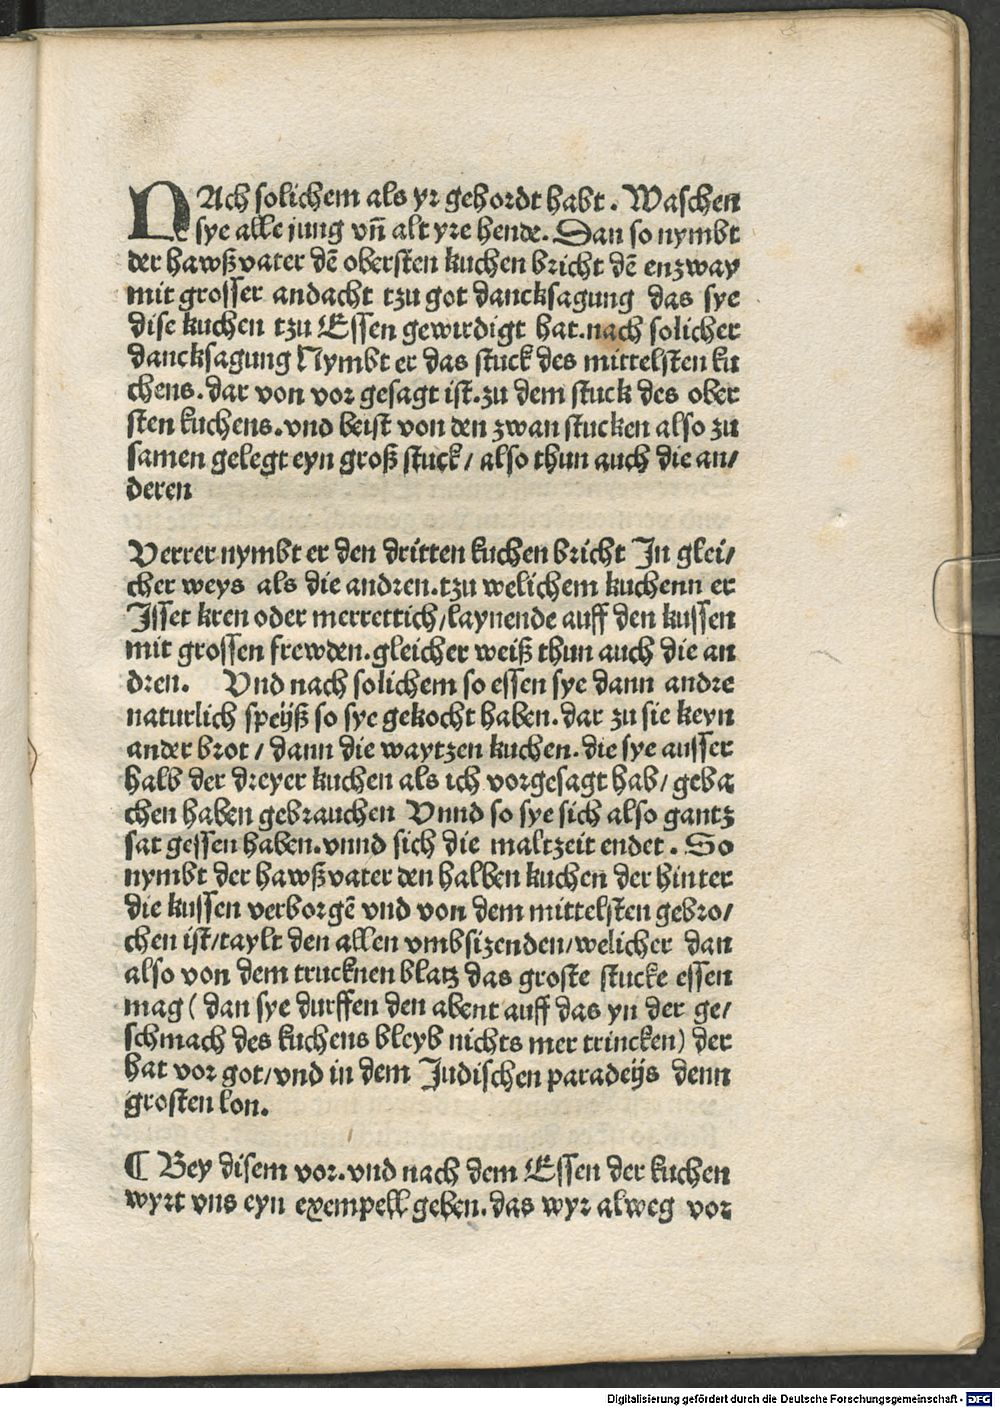 NAch solichem als yr gehordt habt. Waschen
sye alle jung vn̄ alt yre hende. Dan so nymbt
der hawßvater dē obersten kuchen bricht dē enzway
mit grosser andacht tzu got dancksagung das sye
dise kuchen tzu Essen gewirdigt hat. nach solicher
dancksagung Nymbt er das stuck des mittelsten ku
chens. dar von vor gesagt ist. zu dem stuck des ober
sten kuchens. vnd beist von den zwan stucken also zu
samen gelegt eyn groß stuck/ also thun auch die an/
deren
Verrer nymbt er den dritten kuchen bricht In glei/
cher weys als die andren. tzu welichem kuchenn er
Isset kren oder merrettich/ laynende auff den kussen
mit grossen frewden. gleicher weiß thun auch die an
dren. Vnd nach solichem so essen sye dann andre
naturlich speyß so sye gekocht haben. dar zu sie keyn
ander brot/ dann die waytzen kuchen. die sye ausser
halb der dreyer kuchen als ich vorgesagt hab/ geba
chen haben gebrauchen Vnnd so sye sich also gantz
sat gessen haben. vnnd sich die maltzeit endet. So
nymbt der hawßvater den halben kuchen der hinter
die kussen verborgē vnd von dem mittelsten gebro/
chen ist/ taylt den allen vmbsizenden/ welicher dan
also von dem trucknen blatz das groste stucke essen
mag ( dan sye durffen den abent auff das yn der ge/
schmach des kuchens bleyb nichts mer trincken) der
hat vor got/ vnd in dem Judischen paradeijs denn
grosten lon.
¶ Bey disem vor. vnd nach dem Essen der kuchen
wyrt vns eyn exempell geben. das wyr alweg vor
Digitalisierung gefördert durch die Deutsche Forschungsgemeinschaft - DFG